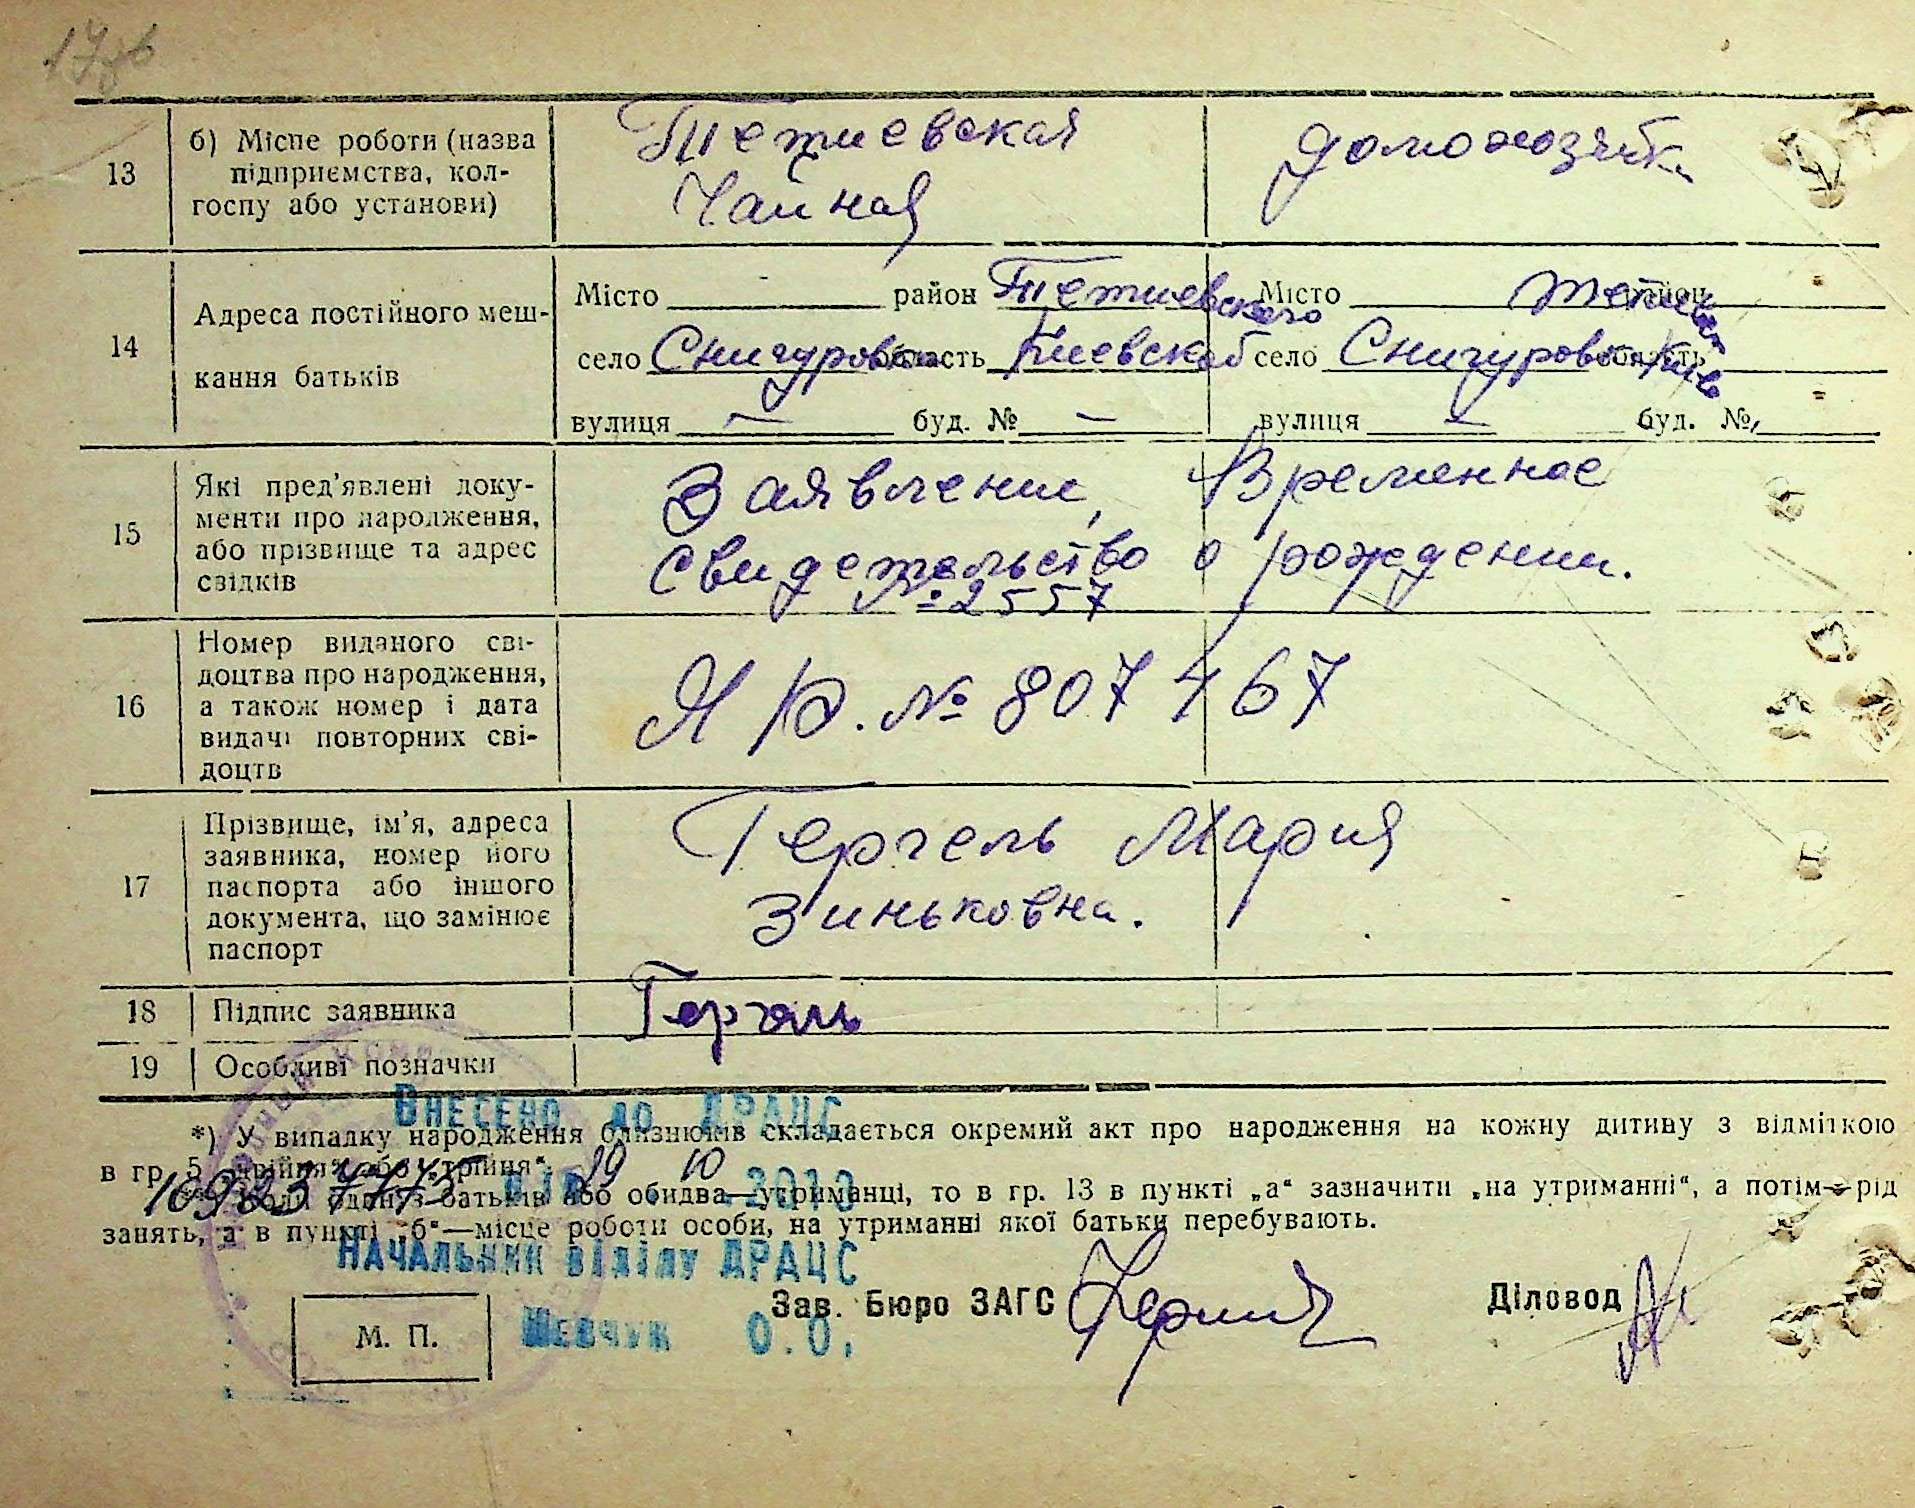 13
б) Місце роботи (назва
підприємства, кол-
госпу або установи)
Тетиевская
Чайная
домохозяйка
14
Адреса постійного меш-
кання батьків
Місто район Тетиевского
село Снигуровка область Киевской
вулиця — буд. № —
Місто район Тетиев
село Снигуровка область Киев
вулиця — буд. №
15
Які пред’явлені доку-
менти про народження,
або прізвище та адрес
свідків
Заявление, Временное
свидетельство о рождении.
№ 2557
16
Номер виданого сві-
доцтва про народження,
а також номер і дата
видачі повторних сві-
доцтв
ЯЮ. № 807467
17
Прізвище, ім’я, адреса
заявника, номер його
паспорта або іншого
документа, що замінює
паспорт
Гергель Мария
Зиньковна.
18
Підпис заявника
Гергель
19
Особливі позначки
Внесено до ДРАЦС
*) У випадку народження близнюків складається окремий акт про народження на кожну дитину з відміткою
в гр. 5 „двійня“ або „трійня“.
29 10 2010
**) Коли один з батьків або обидва—утриманці, то в гр. 13 в пункті „а“ зазначити „на утриманні“, а потім—рід
занять, а в пункті „б“—місце роботи особи, на утриманні якої батьки перебувають.
Начальник відділу ДРАЦС
Шевчук О.О.
Зав. Бюро ЗАГС
Діловод
М. П.